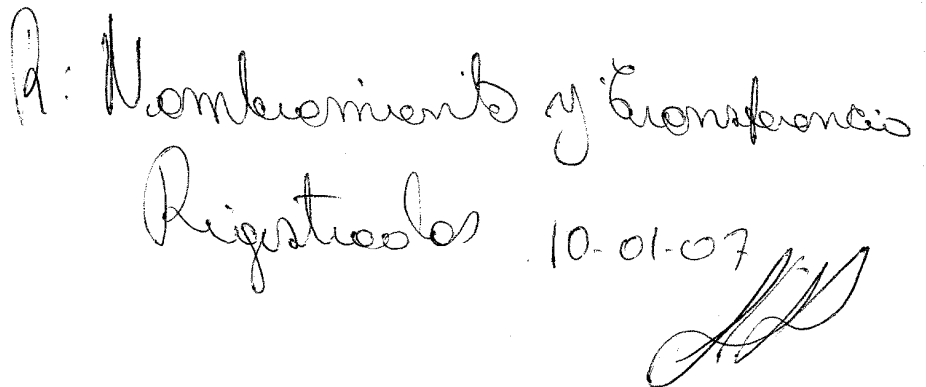 R: Nombramiento y transferencia
Registrados 10-01-07